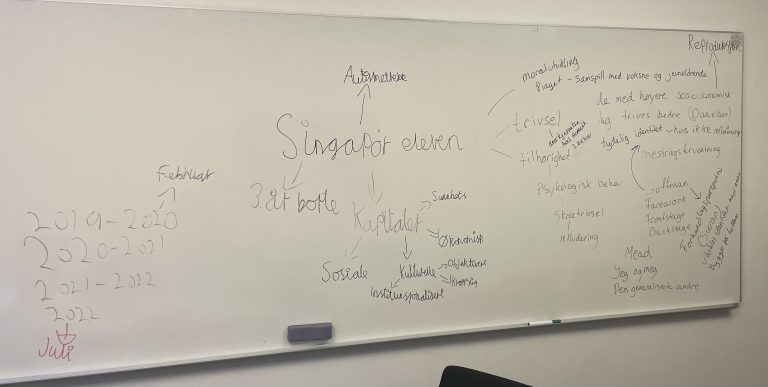 Februar
2019-2020
2020-2021
2021-2022
2022
Juli
Singapør eleven
3. åt borte
Kapitalet
Sunnhets
Økonomisk
Sosiale
Kulturelle
Objektivere
Kroppslig
moralutvikling
Piaget - Samspill med voksne og jevnaldrende
trivsel
tilhørighet
Psykologisk behov
skoletrivsel
inkludering
de med høyere sosioøkonomisk
lag trives bedre (Danielsen)
tydelig identitet - hvis ikke
mestringsforventning
Goffman
Facework
Frontstage
Backstage
Mead
Jeg og meg
Den generaliserte andre